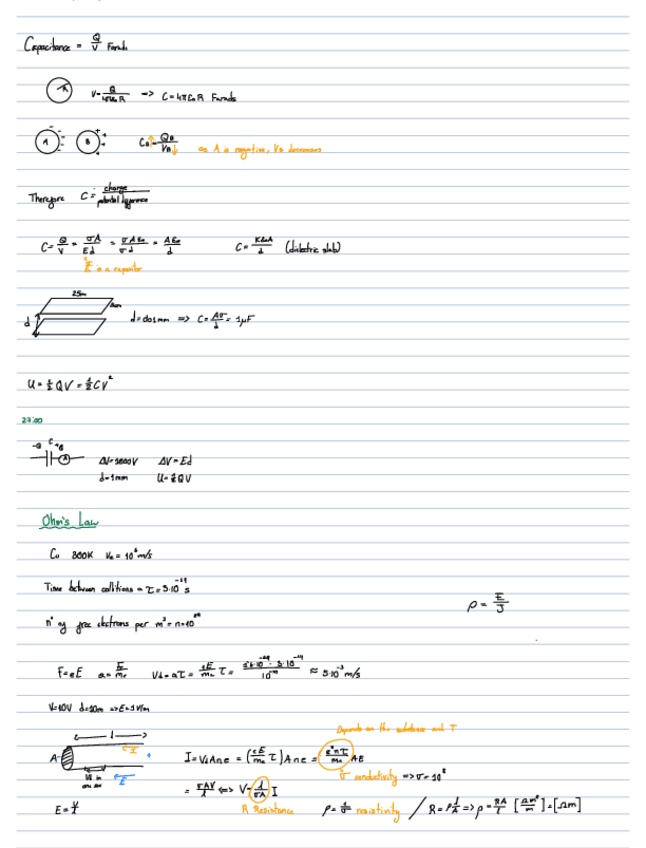 Capacitance = Q/V Farads
V = Q/4πε₀R -> C = 4πε₀R Farads
A B C_B↑ = Q_B/V_B↓ as A is negative, V_B decreases
Therefore C = charge/potential difference
C = Q/V = σA/Ed = σAε₀/σd = Aε₀/d C = Kε₀A/d (dielectric slab)
is a capacitor
25m
d d = 0.01mm => C = 1μF
U = ½QV = ½CV²
27:00
-Q C +Q
ΔV = V ΔV = Ed
d = 1mm U = ½QV
Ohm's Law
Cu 300K = 10⁶ m/s
Time between collitions = τ = 3·10⁻¹⁴ s
ρ = E/J
nº of free electrons per m³ = n =
F = eE a = F/mₑ V_d = aτ = eE/mₑ τ = ≈ 5·10⁻³ m/s
V = 10V d = 10m => E = 1V/m
Depends on the substance and T
l
A I I = V_d A n e = (eE/mₑ τ) A n e = e²nτ/mₑ AE
E σ conductivity => σ = 10⁸
= σAV/l <=> V = l/σA I
E = V/l R Resistance ρ = 1/σ resistivity / R = ρ l/A => ρ = RA/l [Ωm²/m] = [Ωm]